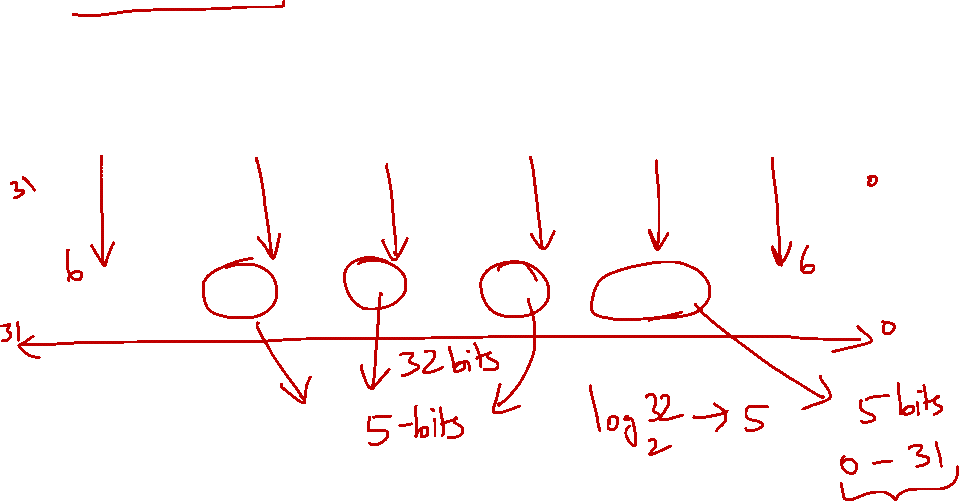 31 0
6 6
31 0
32 bits
5-bits log₂32 → 5 5 bits
0 - 31